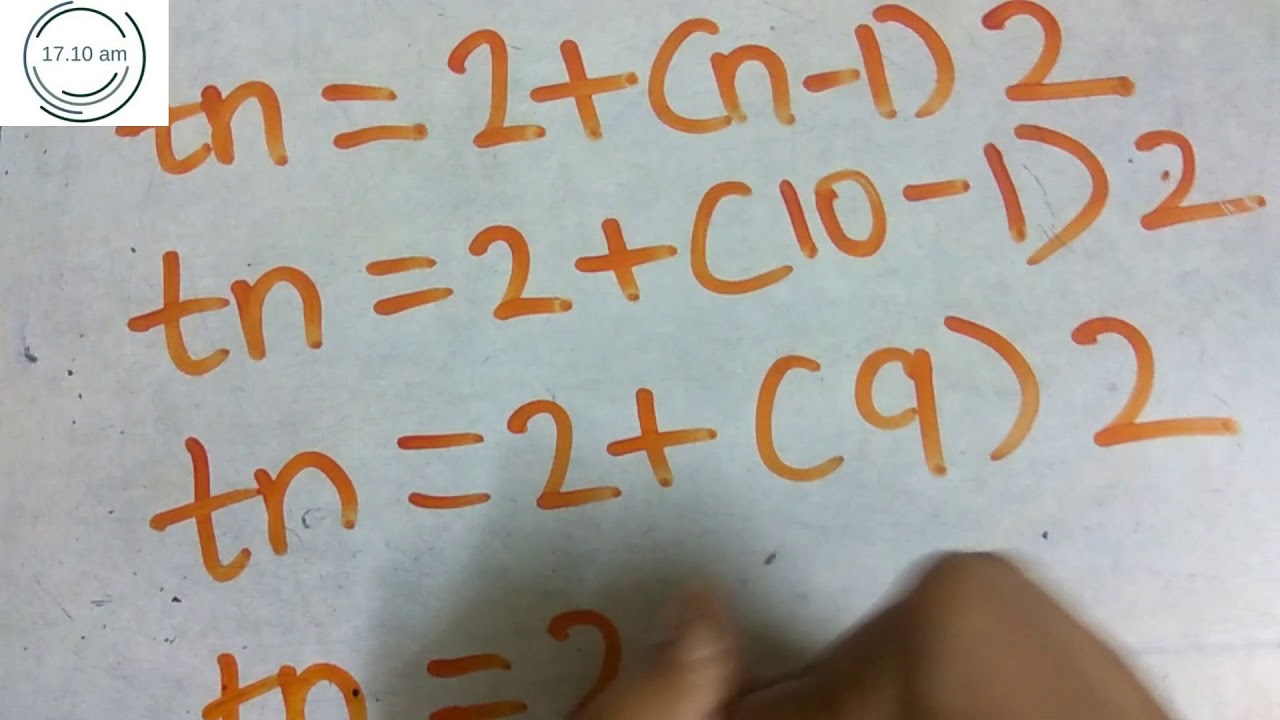 17.10 am
tn = 2 + (n - 1) 2
tn = 2 + (10 - 1) 2
tn = 2 + (9) 2
tn = 2